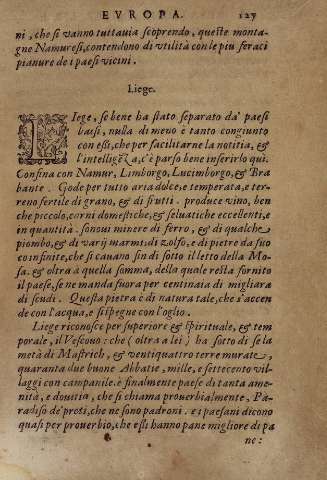 EVROPA. 127
ni, che si vanno tuttauia scoprendo, queste monta-
gne Namuresi, contendono di vtilità con le piu feraci
pianure de i paesi vicini.
Liege.
LIege, se bene ha stato separato da' paesi
bassi, nulla di meno è tanto congiunto
con essi, che per facilitarne la notitia, &
l'intelligẽza, c'è parso bene inserirlo qui.
Confina con Namur, Limborgo, Lucimborgo, & Bra
bante. Gode per tutto aria dolce, e temperata, e ter-
reno fertile di grano, & di frutti. produce vino, ben
che piccolo, carni domestiche, & seluatiche eccellenti, e
in quantità. sonoui minere di ferro, & di qualche
piombo, & di varij marmi: di zolfo, e di pietre da fuo
co infinite, che si cauano sin di sotto il letto della Mo-
sa. & oltra a quella somma, della quale resta fornito
il paese, se ne manda fuora per centinaia di migliara
di scudi. Questa pietra è di natura tale, che s'accen
de con l'acqua, e si spegne con l'oglio.
Liege riconosce per superiore & spirituale, & tem
porale, il Vescouo: che (oltra a lei) ha sotto di se la
metà di Mastrich, & ventiquattro terre murate,
quaranta due buone Abbatie, mille, e settecento vil-
laggi con campanile. è finalmente paese di tanta ame
nità, e douitia, che si chiama prouerbialmente, Pa-
radiso de' preti, che ne sono padroni. e i paesani dicono
quasi per prouerbio, che essi hanno pane migliore di pa
ne: